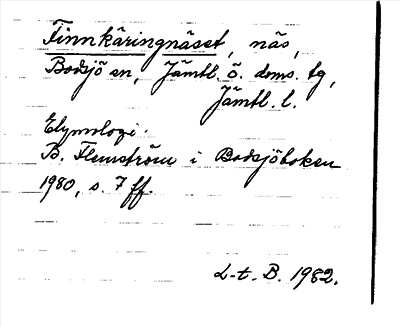 Finnkäringnäset, näs,
Bodsjö sn, Jämtl. ö. dms. tg,
Jämtl. l.
Etymologi:
B. Flemström i Bodsjöboken
1980, s. 7 ff.
L-t. B. 1982.